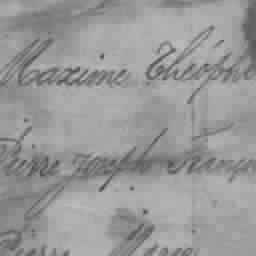 Maxime Théoph
Pierre Joseph Franço
Pierre Marie